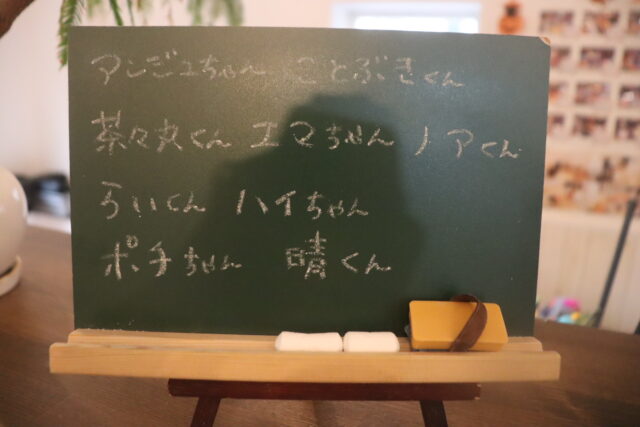 アンジュちゃん ことぶきくん
茶々丸くん エマちゃん ノアくん
らいくん ハイちゃん
ポチちゃん 晴くん